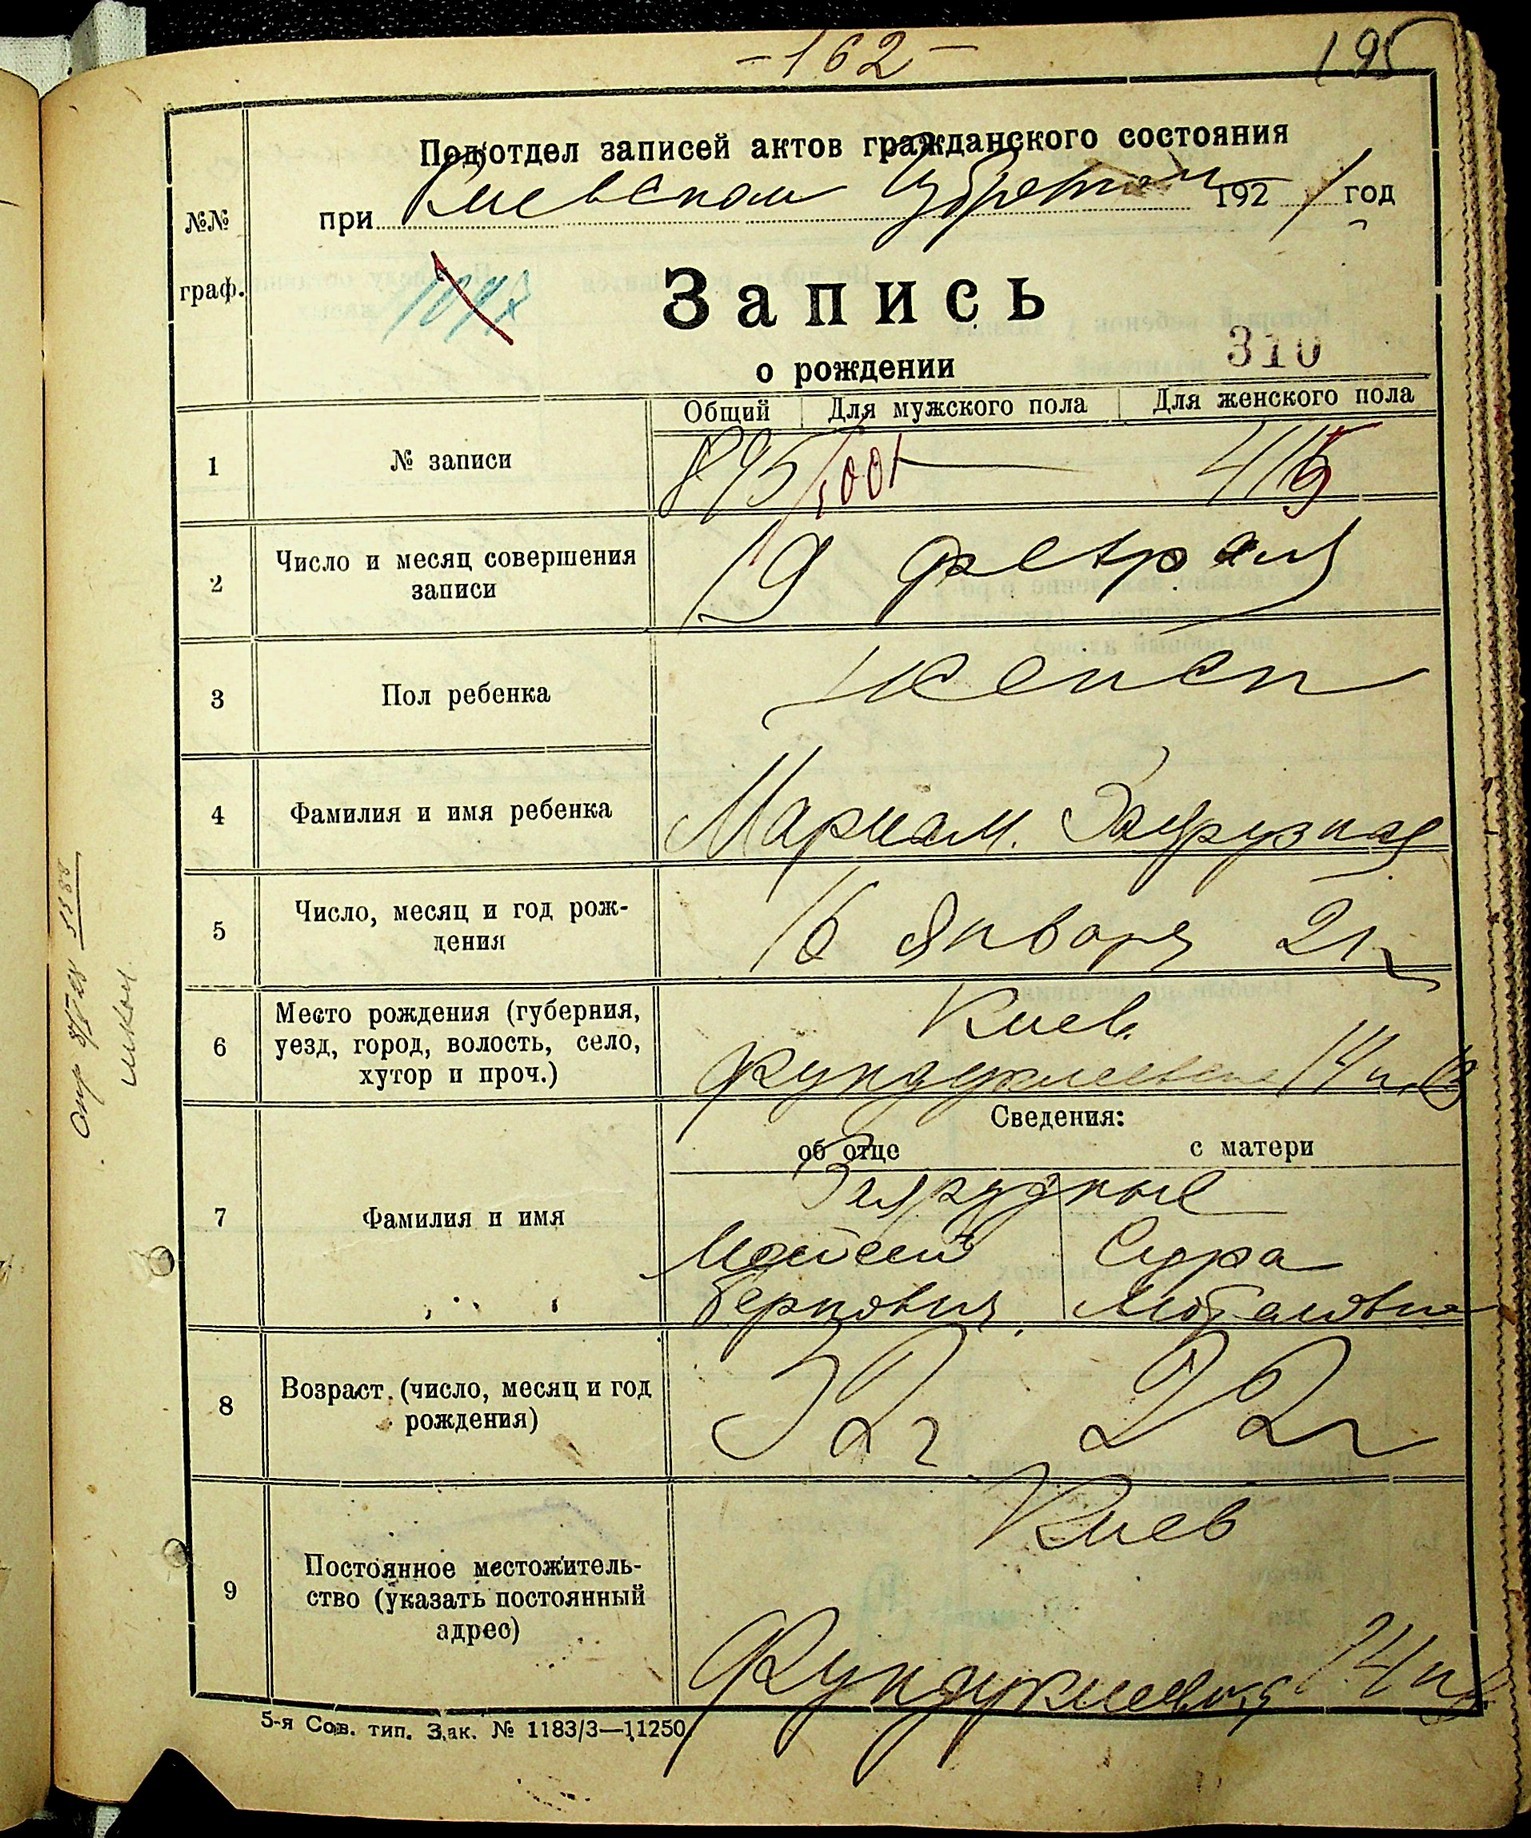 - 162 -
195
Подотдел записей актов гражданского состояния
при Киевском Губревкоме 1921 год
№№
граф.
Запись
310
о рождении
Общий Для мужского пола Для женского пола
1 № записи 895/1001 — 415
2 Число и месяц совершения
записи
19 февраля
3 Пол ребенка женск
4 Фамилия и имя ребенка Мариам
5 Число, месяц и год рож-
дения
16 января 21 г
6 Место рождения (губерния,
уезд, город, волость, село,
хутор и проч.)
Киев
Фундуклеевская 14 кв
Сведения:
об отце с матери
7 Фамилия и имя
Моисей Сура
Беркович
8 Возраст. (число, месяц и год
рождения)
32 г 22 г
9 Постоянное местожитель-
ство (указать постоянный
адрес)
Киев
Фундуклеевская 14 кв
5-я Сов. тип. Зак. № 1183/3—11250.